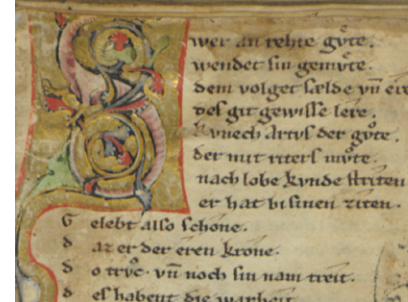 Swer an rehte gůte.
wendet sin gemůte.
dem volget sælde vn̄ ere
des git gewisse lere.
kvnech Artvs der gůte.
der mit riters můte.
nach lobe kvnde striten
er hat bi sinen ziten.
G elebt also schone.
d az er der eren krone.
d o trvͦc. vn̄ noch sin nam treit.
d es habent die warheit